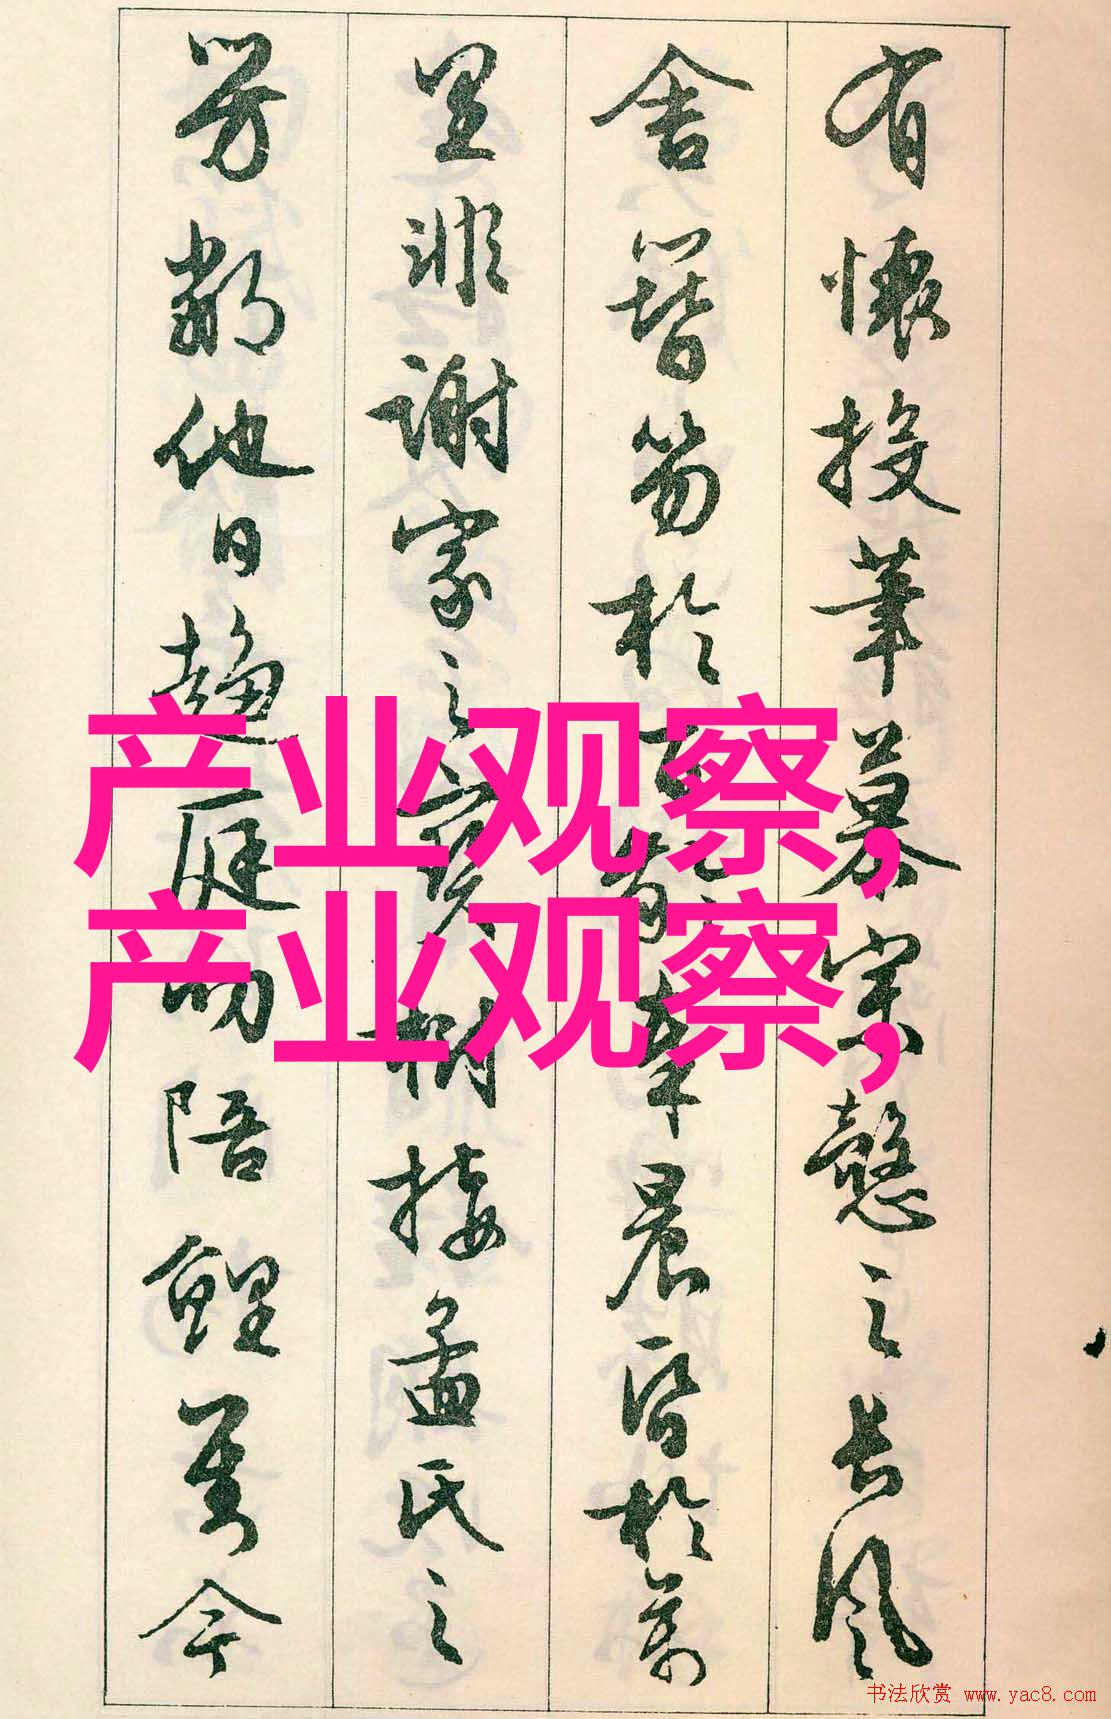 有懷投筆慕宗慤之長風
舍簪笏於百齡奉晨昏於萬
里非謝家之寶樹接孟氏之
芳鄰他日趨庭叨陪鯉對今
产业观察,
产业观察,
书法欣赏 www.yac8.com